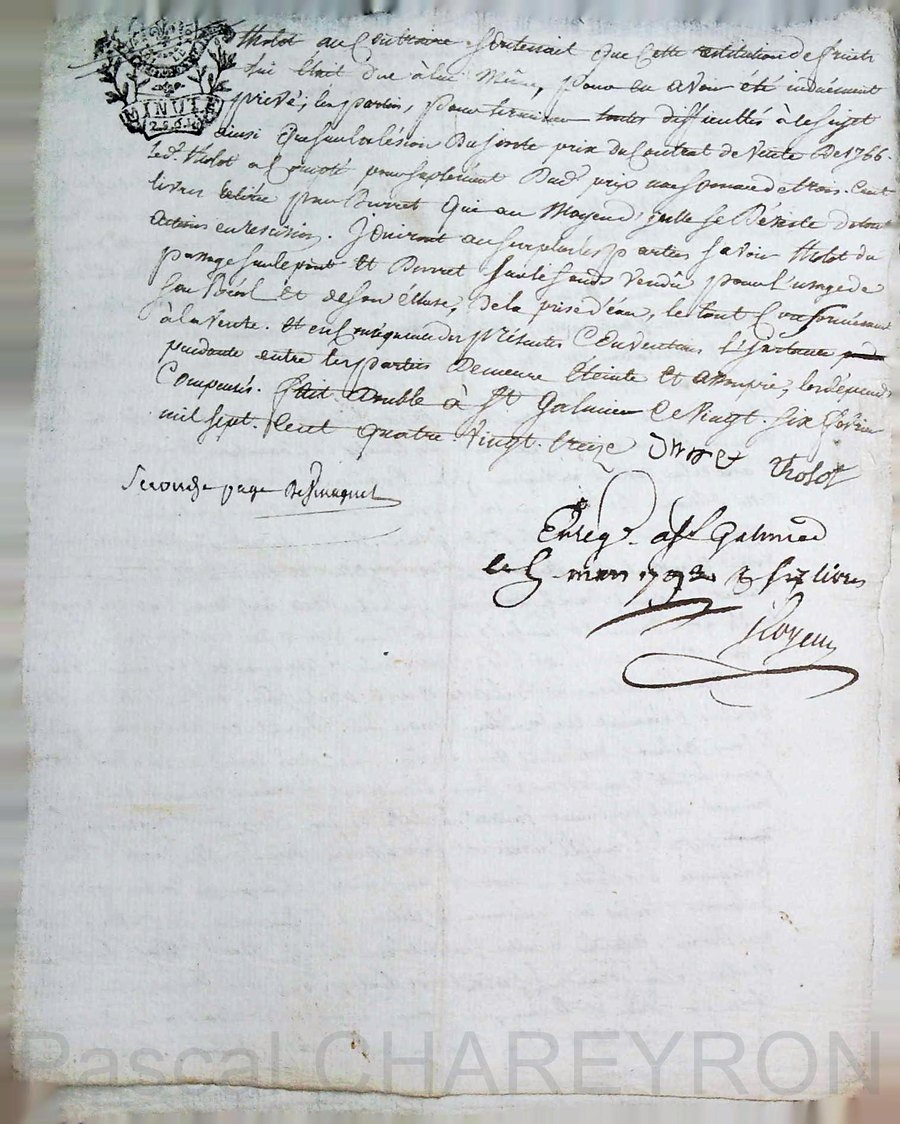 MINUTE
2. S. 6. D.
tholot au Contraire Soutenait que Cette restitution de fruits
lui était due à lui Même, pour en avoir été induëment
privé; les parties, pour terminer toutes difficultés à le Sujet
ainsi que sur la lésion Du juste prix du Contrat de Vente De 1766.
Led. tholot a Compté pour suplément Dud. prix une somme de trois Cent
livres audit Duvret qui au Moyend'icelle se Désiste de tout
actions en rescision. Jouiront au surplus les parties savoir tholot du
passage sur le pont Et Duvret sur le fonds vendu pour l'usage de
Son et de son écluse, de la prise d'eau, le tout Conformément
à la Vente. Et en Conséquence des présentes Conventions L'instance
pendante entre les parties Demeure éteinte et assoupie, les dépends
Compensés. fait Double à St Galmier Ce Vingt. six février
mil sept. Cent quatre Vingt. treize tholot
Seconde page
Enreg. a St Galmier
le 5 mars 1793 R. six livres
Pascal CHAREYRON